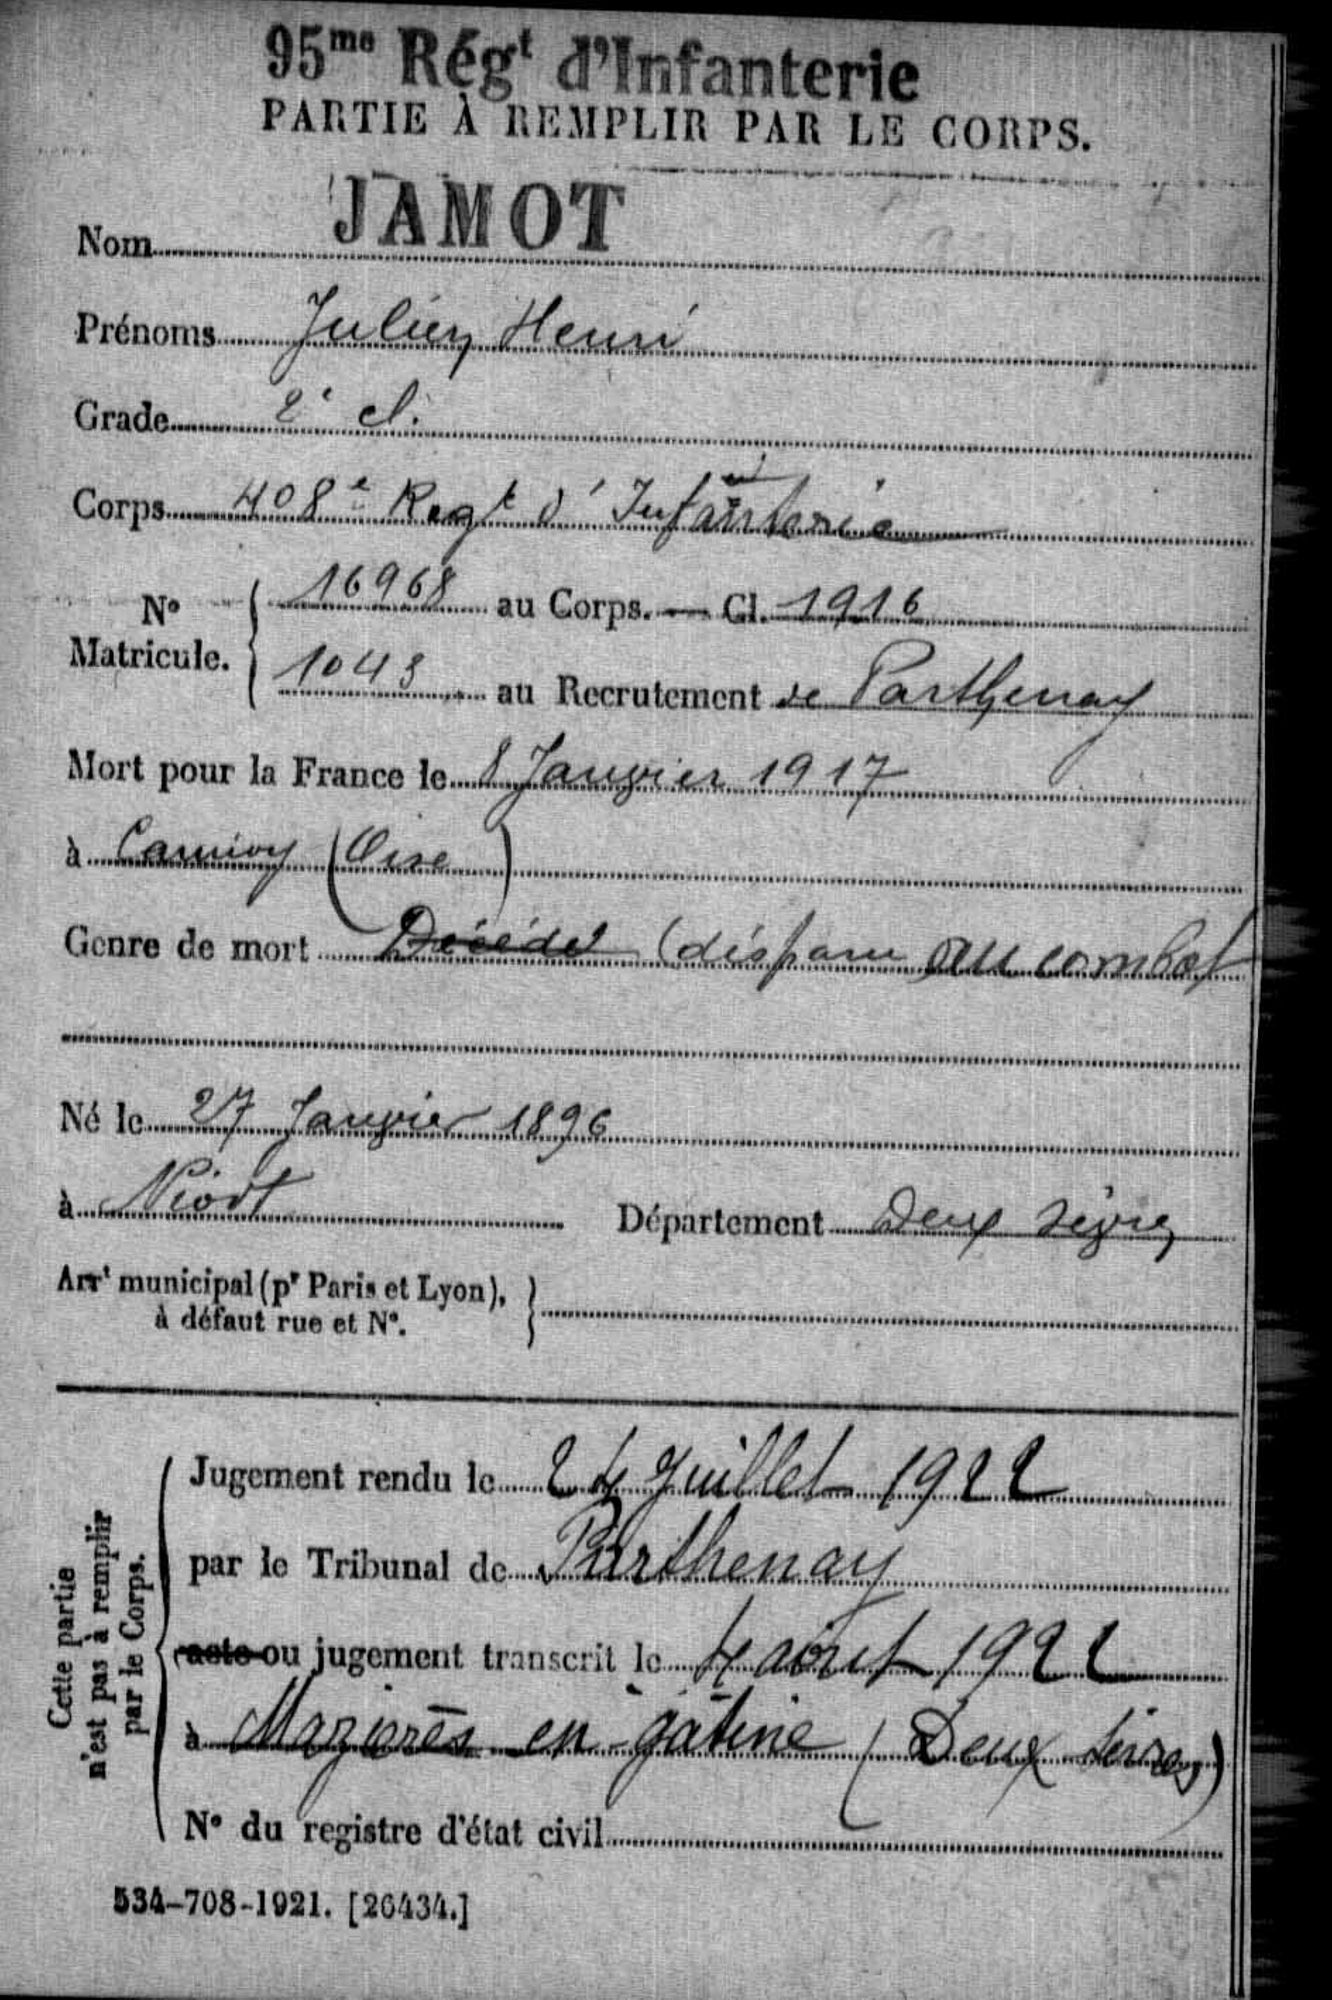 95me Régt d'Infanterie
PARTIE À REMPLIR PAR LE CORPS.
Nom JAMOT
Prénoms Julien Henri
Grade 2e cl.
Corps 408e Regt d'Infanterie
No Matricule. 16968 au Corps. — Cl. 1916
1043 au Recrutement de Parthenay
Mort pour la France le 8 Janvier 1917
à (Oise)
Genre de mort Décédé (disparu au combat
Né le 27 Janvier 1896
à Niort Département Deux Sèvres
Arrt municipal (pr Paris et Lyon),
à défaut rue et No.
Cette partie
n'est pas à remplir
par le Corps.
Jugement rendu le 24 Juillet 1922
par le Tribunal de Parthenay
acte ou jugement transcrit le 4 août 1922
à Mazières en gâtine (Deux Sèvres)
No du registre d'état civil
534-708-1921. [26434.]